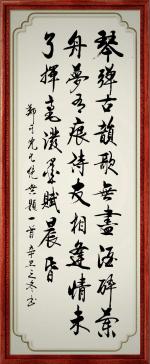 琴彈古韻歌無盡酒醉蘭
舟夢有痕詩友相逢情未
了揮毫潑墨賦晨昏
無題一首辛丑之冬書